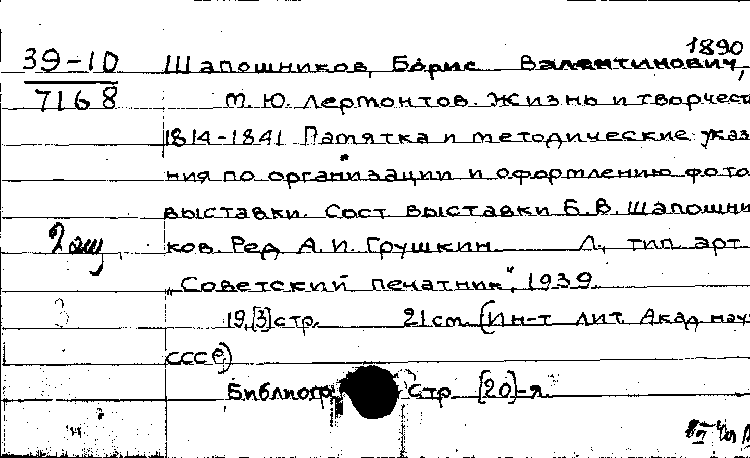 1890
39-10 Шапошников, Борис Валентинович,
7168 М. Ю. Лермонтов. Жизнь и творчест
1814-1841 Памятка и методические указ
ния по организации и оформлению фото
выставки. Сост выставки Б. В. Шапошни
2 ков. Ред А. И. Грушкин. Л, тип арт
„Советский печатник", 1939
3 19,[3]стр. 21 cm. (Ин-т лит. Акад нау
СССР)
Библиогр стр [20]-я.